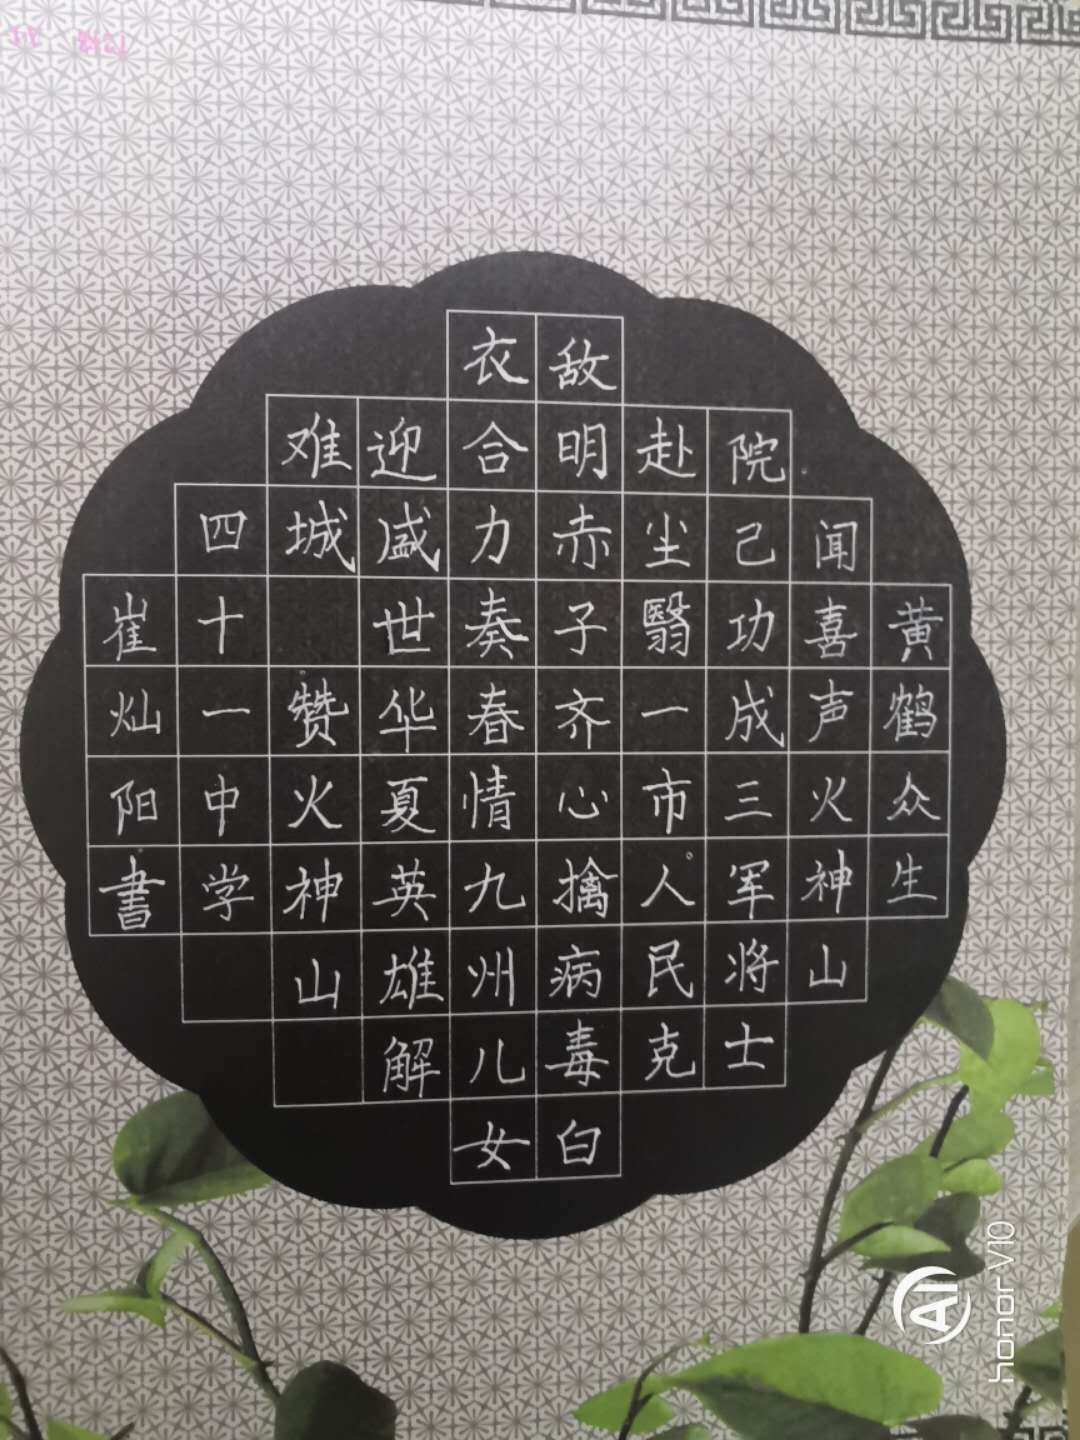 黄鹤众生
闻喜声火神山
院己功成三军将士
赴尘翳一市人民克
敌明赤子齐心擒病毒白
衣合力奏春情九州儿女
迎盛世华夏英雄解
难城 赞火神山
四十一中学
崔灿阳書
honor V10